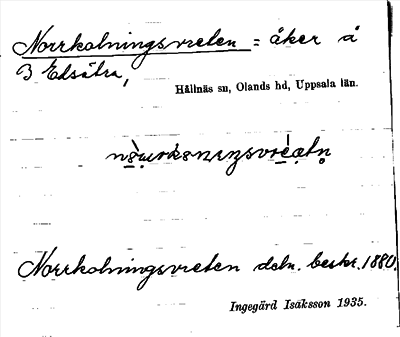 Norrkolningsvreten = åker å
B Edsätra,
Hållnäs sn, Olands hd, Uppsala län.
Norrkolningsvreten deln. beskr. 1880.
Ingegärd Isaksson 1935.